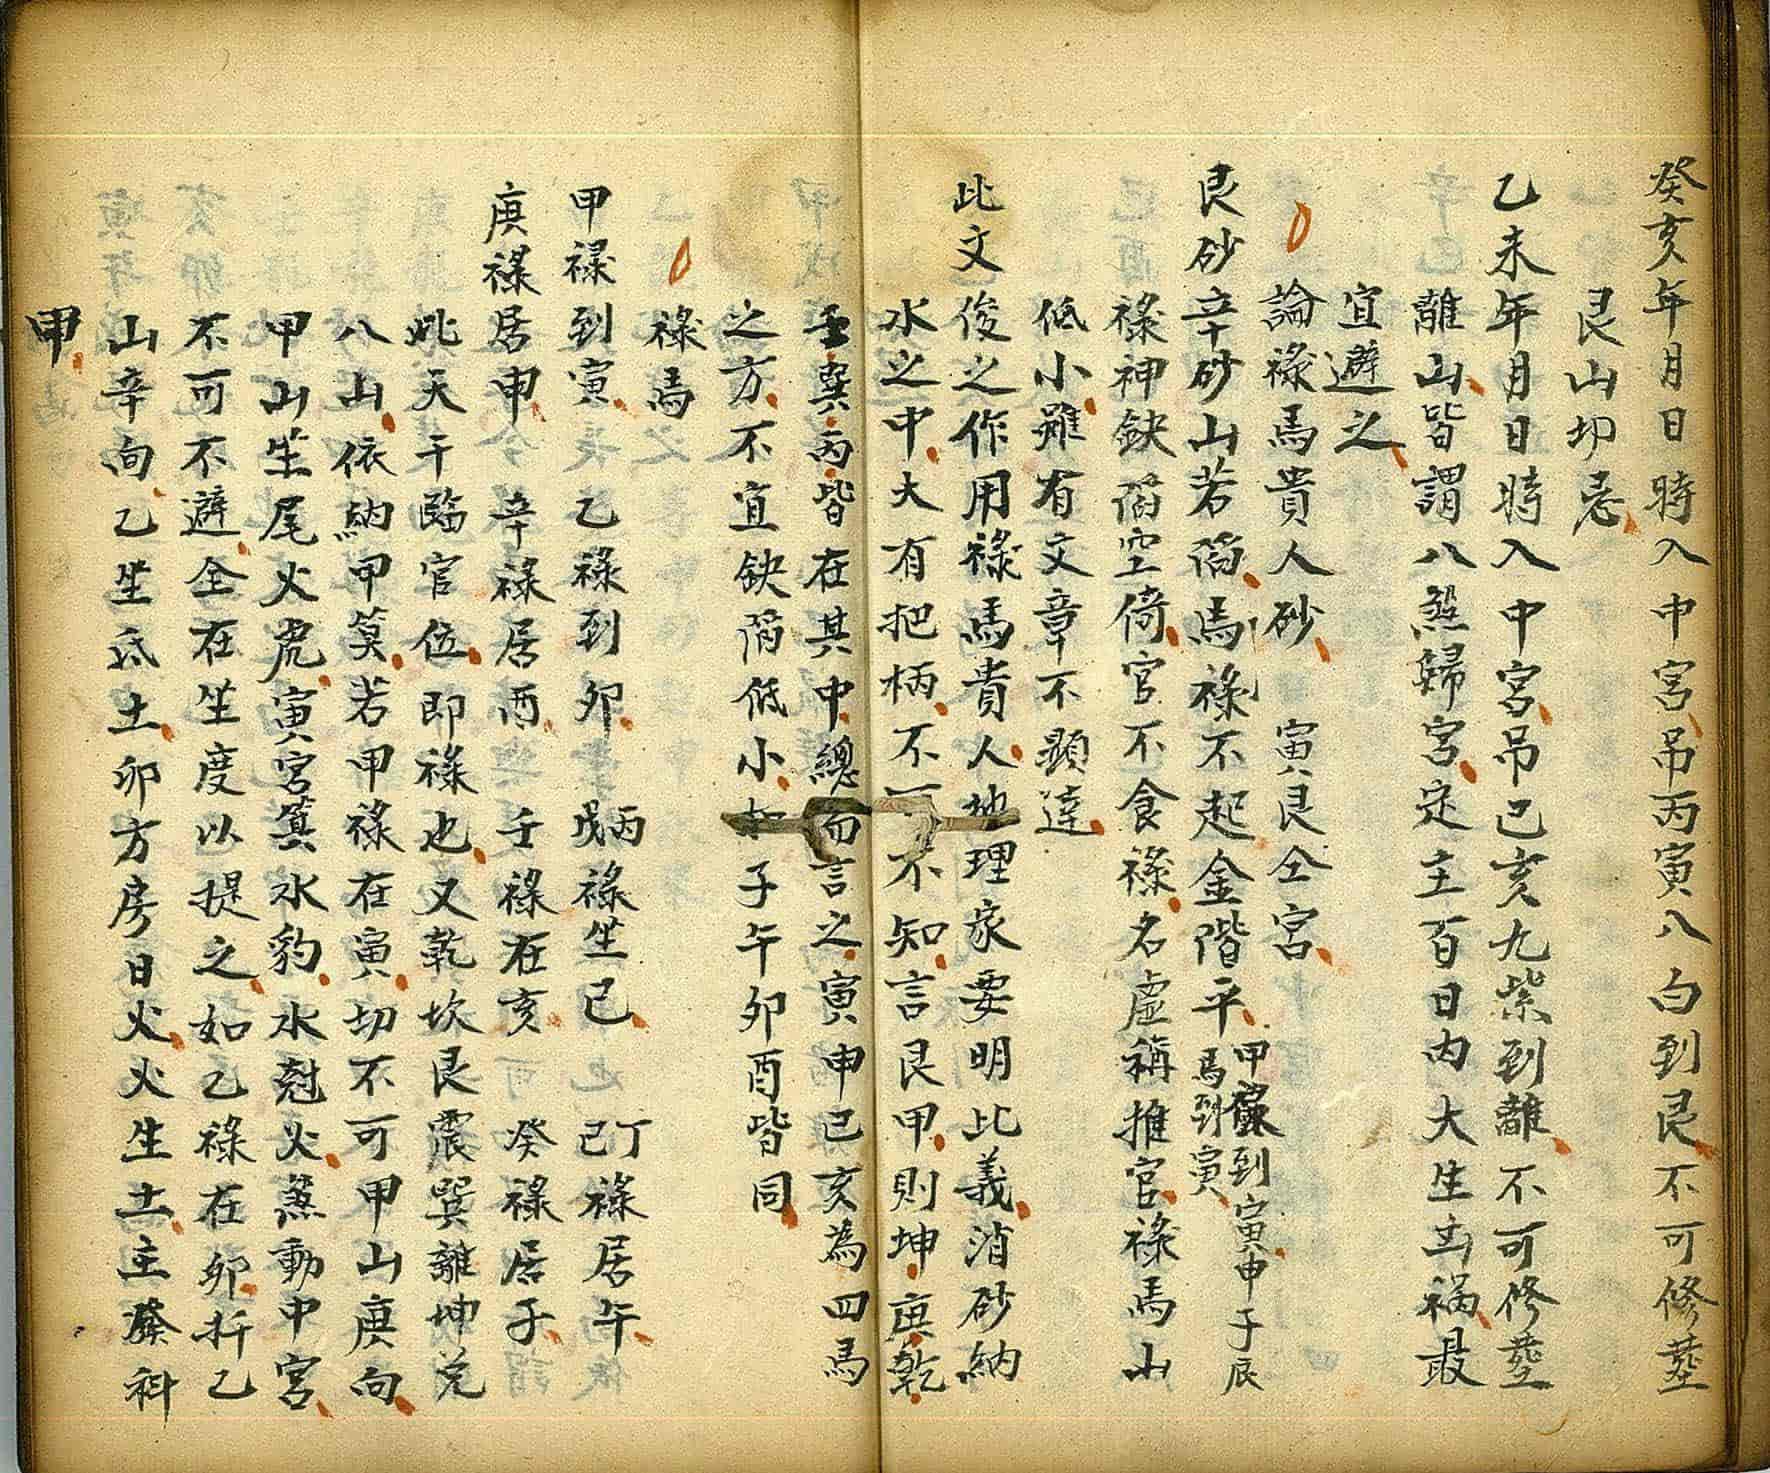 癸亥年月日時入中宮吊丙寅八白到艮不可修塟
艮山切忌
乙未年月日時入中宮吊己亥九紫到離不可修塟
離山皆謂八煞歸宮定主百日内大生禍最
宜避之
論祿馬貴人砂 寅艮仝宮
艮砂辛砂山若陷馬祿不起金階平甲祿到寅申子辰馬到寅
祿神缺陷空倚官不食祿名虛稱推官祿馬山
低小雖有文章不顯達
此文俊之作用祿馬貴人地理家要明比義消砂納
水之中大有把柄不可不知言艮甲則坤庚乾
壬巽丙皆在其中總而言之寅申已亥為四馬
之方不宜缺陷低小如子午卯酉皆同
祿馬
甲祿到寅 乙祿到卯 丙戊祿坐已 丁己祿居午
庚祿居申 辛祿居酉 壬祿在亥 癸祿居子
此天干臨官位即祿也又乾坎艮震巽離坤兌
八山依納甲算若甲祿在寅切不可甲山庚向
甲山坐尾火虎寅宮箕水豹水尅火煞動中宮
不可不避全在坐度以提之如乙祿在卯扦乙
山辛向乙坐氐土卯方房日火火生土主發科
甲